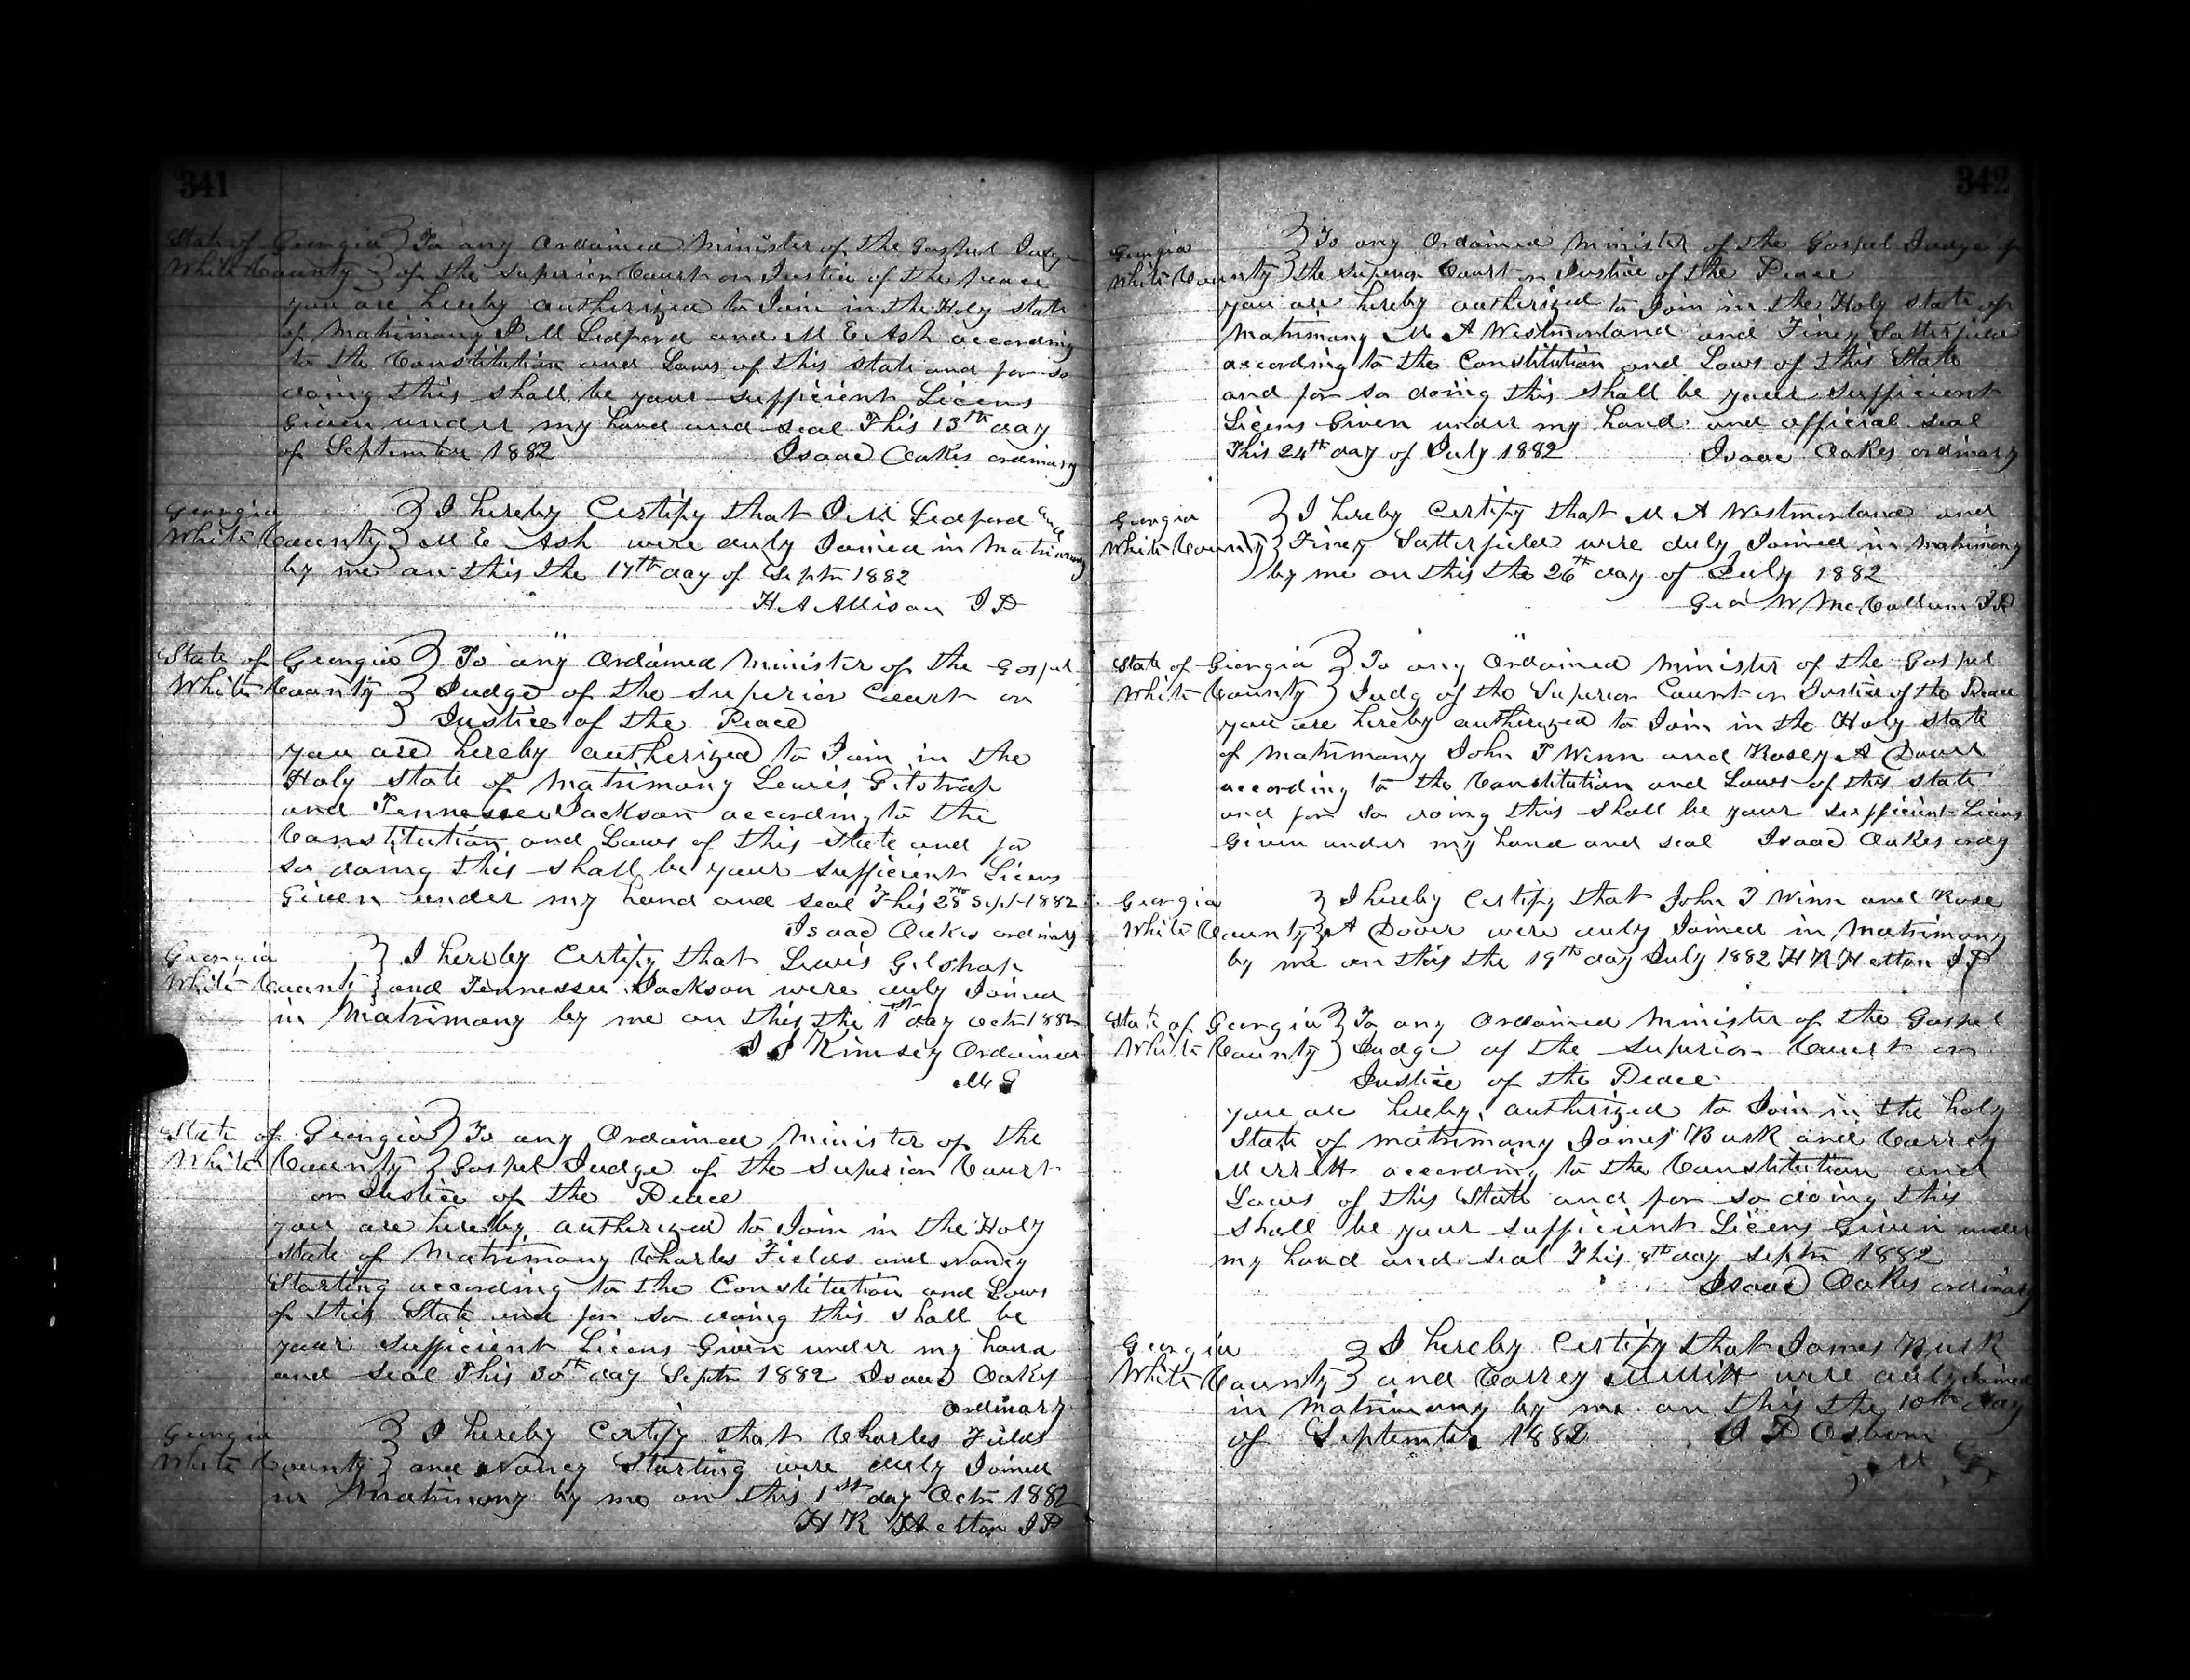 341
State of Georgia } To any Ordained Minister of the Gosphel Judge
White County } of the superior Court or Justice of the peace
you are hereby authorized to Join in the Holy state
of Matrimony J M Ledford and M E Ash according
to the Constitution and Laws of this state and for so
doing this shall be your sufficient Licens
Given under my hand and seal This 13th day
of September 1882 Isaac Oakes ordinary
Georgia } I hereby Certify that J M Ledford and
White County } M E Ash were duly Joined in Matrimony
by me on this the 17th day of Septr 1882
H A Allison J P
State of Georgia } To any Ordained Minister of the Gospel
White County } Judge of the Superior Court or
} Justice of the Peace
you are hereby authorized to Join in the
Holy state of Matrimony Lewis Gilstrap
and Tennessee Jackson according to the
Constitution and Laws of this state and for
so doing this shall be your sufficient Licens
Given under my hand and seal This 28th Sept 1882
Isaac Oakes ordinary
Georgia } I hereby Certify that Lewis Gilstrap
White County } and Tennessee Jackson were duly Joined
in Matrimony by me on this the 1st day Octr 1882
Kimsey Ordained
M G
State of Georgia } To any Ordained Minister of the
White County } Gospel Judge of the Superior Court
or Justice of the Peace
you are hereby authorized to Join in the Holy
state of Matrimony Charles Fields and Nancy
Starting according to the Constitution and Laws
of this State and for so doing this shall be
your sufficient Licens Given under my hand
and seal This 30th day Septr 1882 Isaac Oakes
Ordinary
Georgia } I hereby Certify that Charles Fields
White County } and Nancy Starting were duly Joined
in Matrimony by me on this 1st day Octr 1882
H R Helton J P
342
Georgia } To any Ordained Minister of the Gospel Judge of
White County } the Superior Court or Justice of the Peace
you are hereby authorized to Join in the Holy state of
Matrimony M A Westmorland and Finey Satterfield
according to the Constitution and Laws of this State
and for so doing this shall be your sufficient
Licens Given under my hand and official seal
This 24th day of July 1882 Isaac Oakes ordinary
Georgia } I hereby Certify that M A Westmorland and
White County } Finey Satterfield were duly Joined in Matrimony
by me on this the 26th day of July 1882
Geo W McCollum J P
State of Georgia } To any Ordained Minister of the Gospel
White County } Judg of the Superior Court or Justice of the Peace
you are hereby autherized to Join in the Holy state
of Matrimony John T Winn and Rosey A Dover
according to the Constitution and Laws of this state
and for so doing this shall be your sufficient Licens
Given under my hand and seal Isaac Oakes ordy
Georgia } I hereby Certify that John T Winn and Rose
White County } A Dover were duly Joined in Matrimony
by me on this the 19th day July 1882 H R Helton J P
State of Georgia } To any Ordained Minister of the Gospel
White County } Judge of the Superior Court or
Justice of the Peace
you are hereby autherized to Join in the holy
State of matrimony James Busk and Carrey
Merritt according to the Constitution and
Laws of this State and for so doing this
shall be your sufficient Licens Given under
my hand and seal This 8th day Septr 1882
Isaac Oakes ordinary
Georgia } I hereby Certify that James Busk
White County } and Carrey Merritt were duly Joined
in Matrimony by me on this the 10th day
of September 1882 Osborn
M G